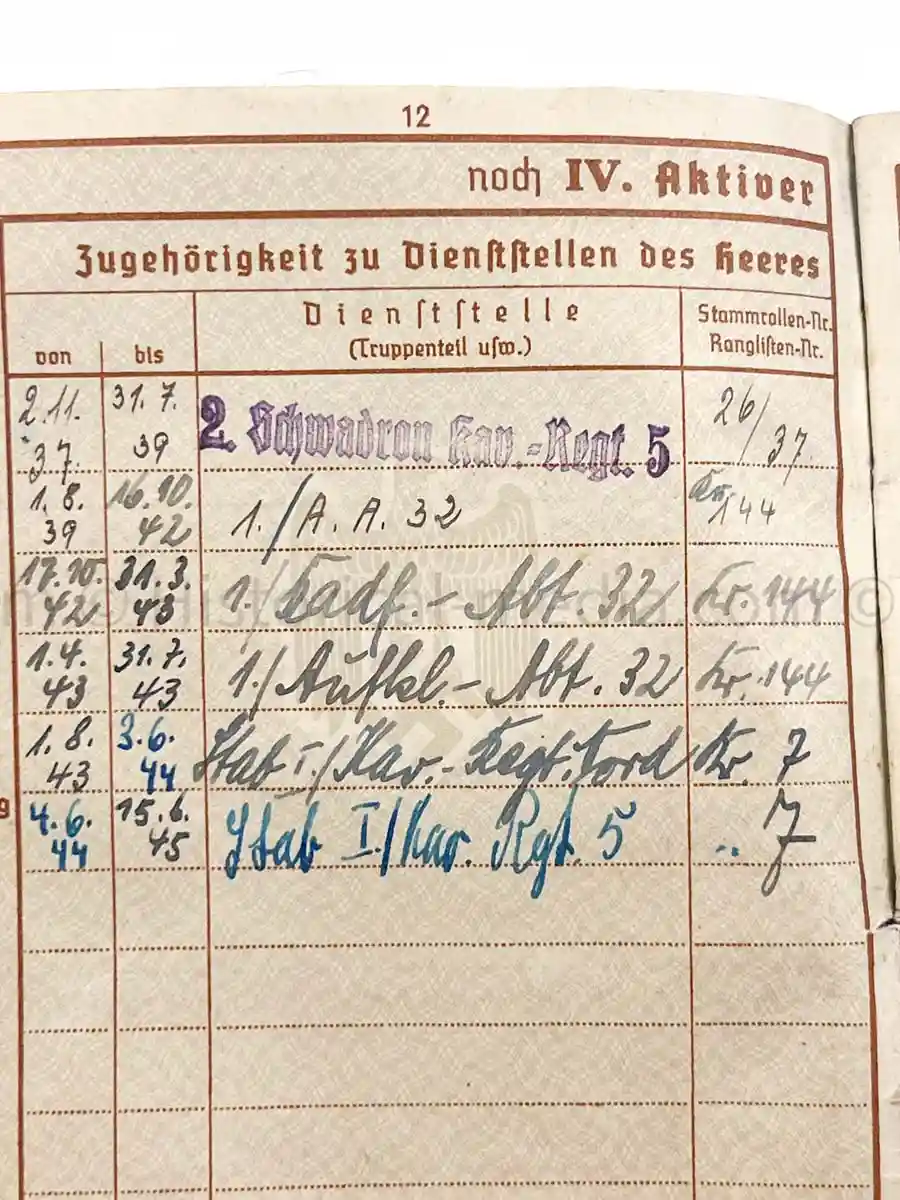 12
noch IV. Aktiver
Zugehörigkeit zu Dienststellen des Heeres
von bis Dienststelle (Truppenteil usw.) Stammrollen-Nr. Ranglisten-Nr.
2.11. 37. 31. 7. 39 2. Schwadron Kav.-Regt. 5 26/37.
1. 8. 39 16.10. 42 1./A. A. 32 Kr. 144
17.10. 42 31.3. 43 1./Radf.-Abt. 32 Kr. 144
1.4. 43 31.7. 43 1./Aufkl.-Abt. 32 Kr. 144
1. 8. 43 3.6. 44 Stab I./Kav.-Regt. Nord Kr. 7
4.6. 44 15.6. 45 Stab I./Kav. Rgt. 5 " 7
©